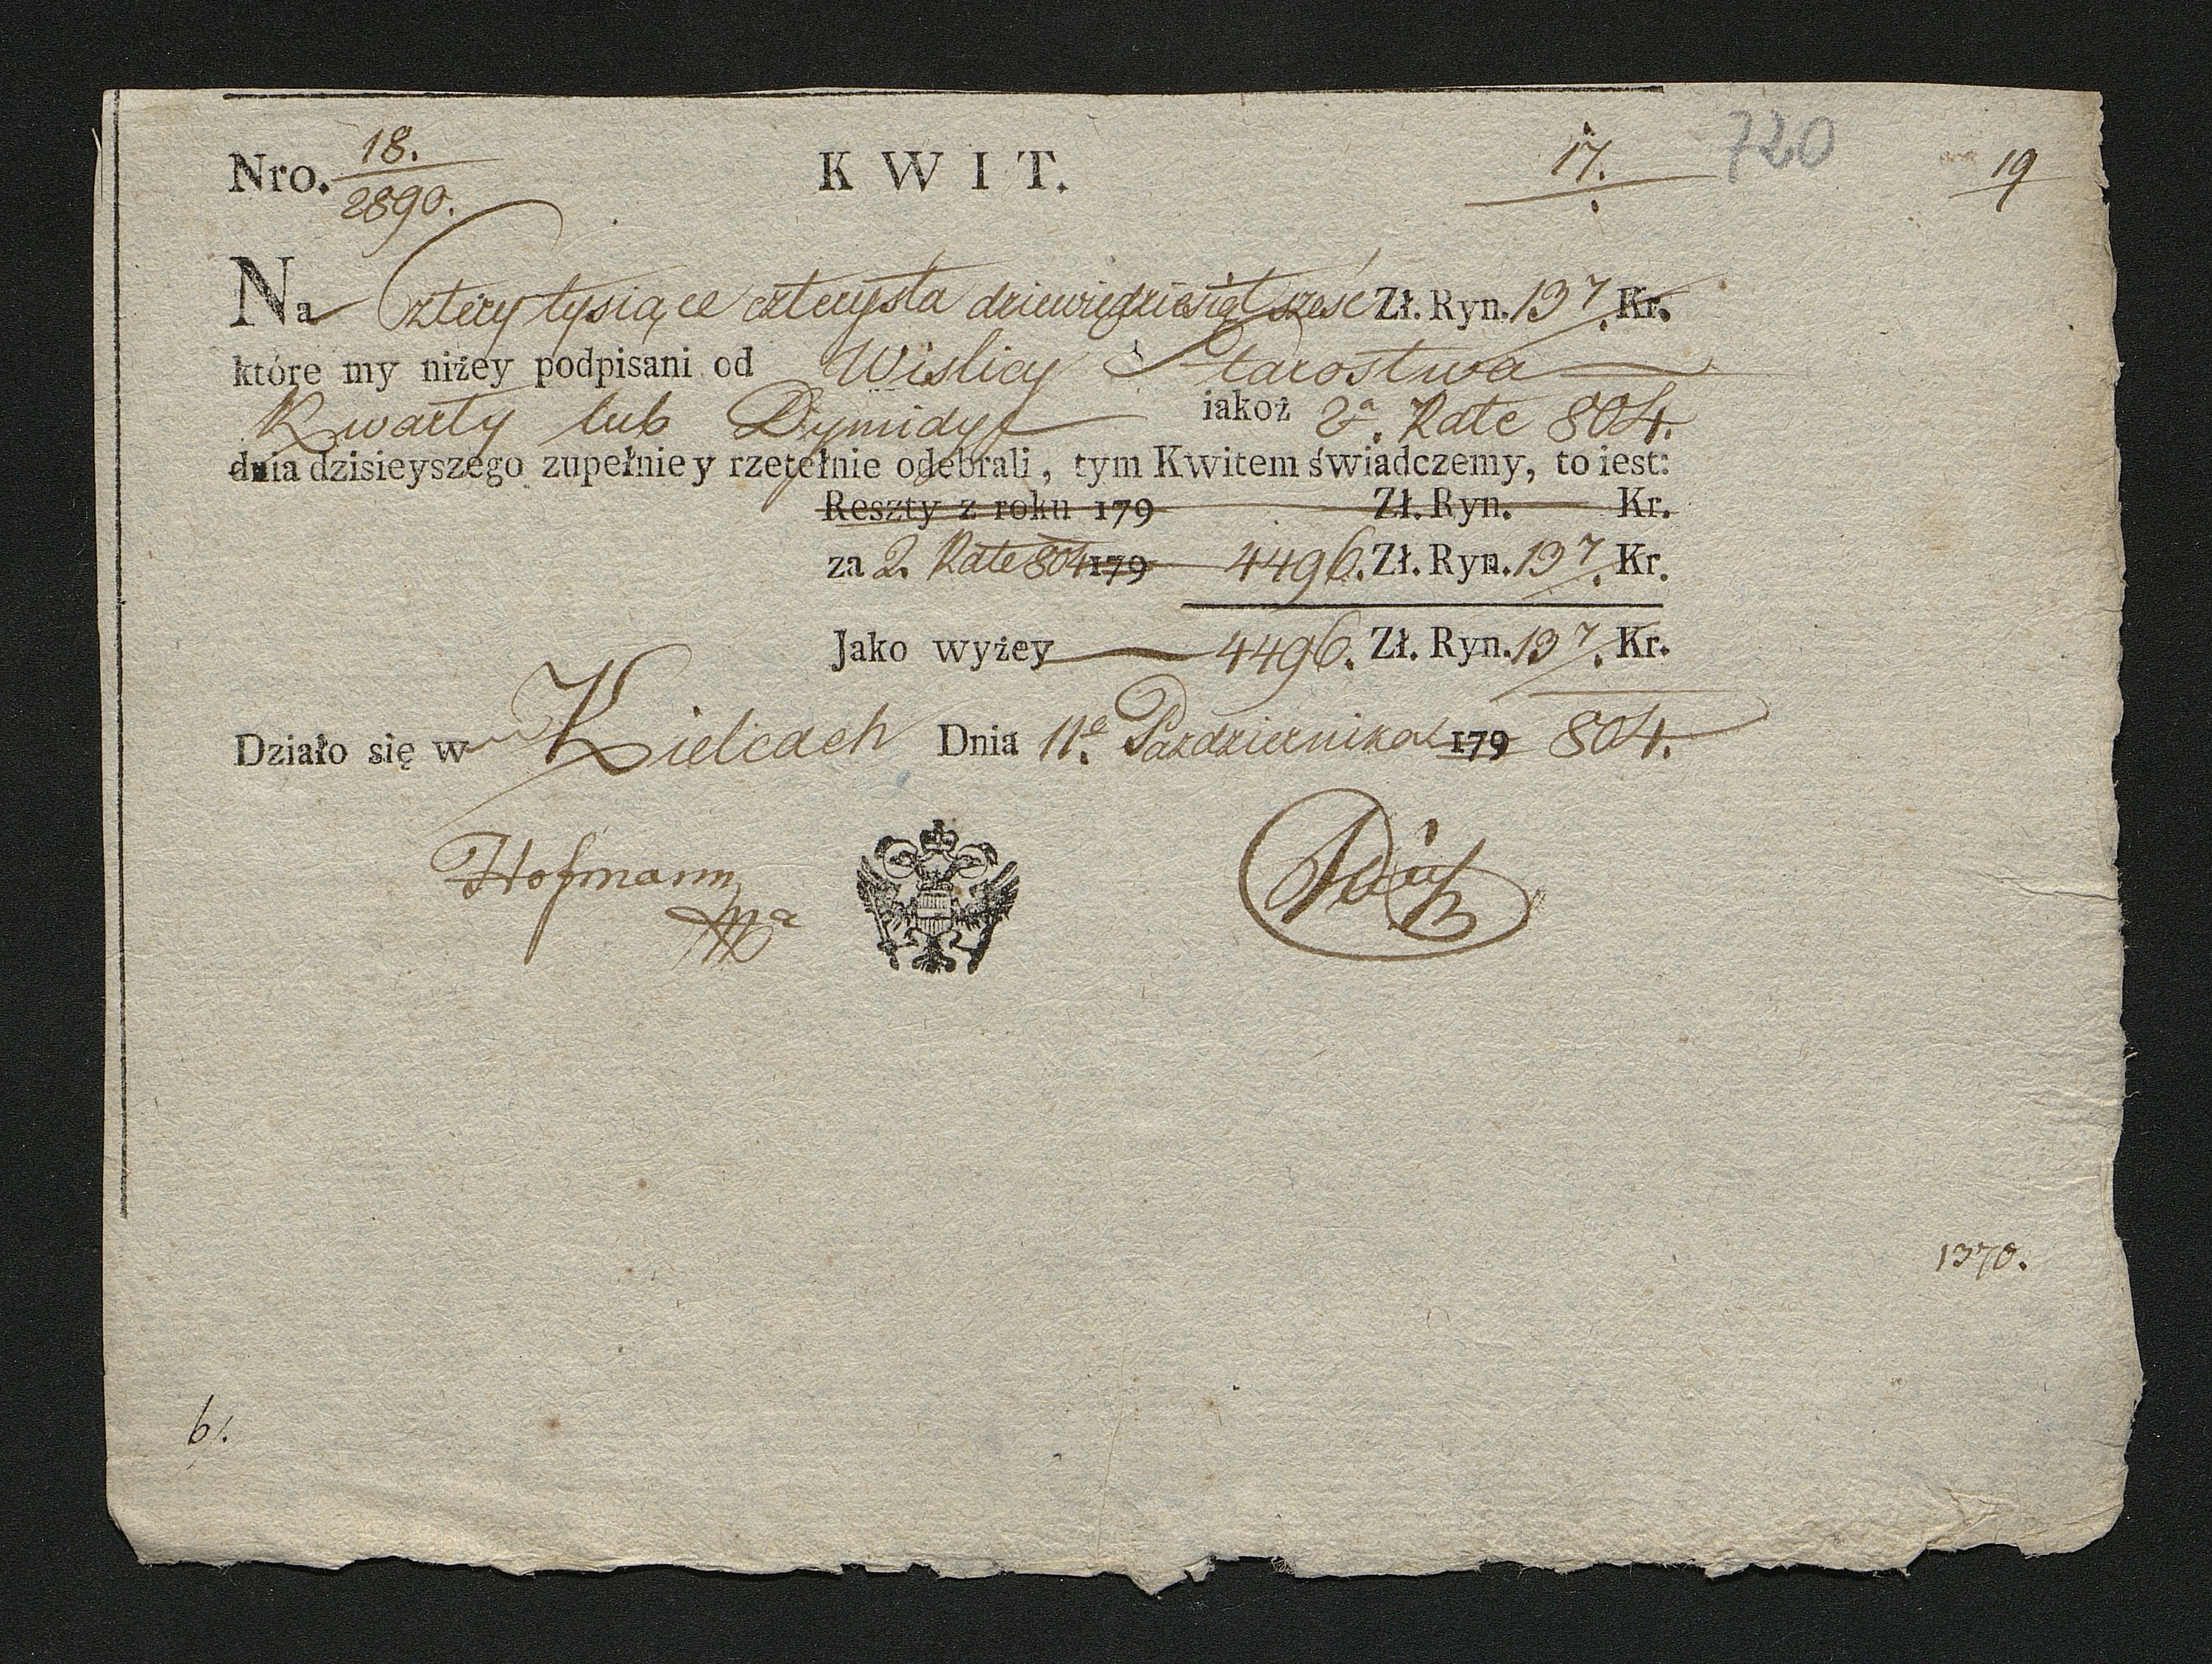 Nro. 18./2890. KWIT. 17. 720 19
Na Cztery tysiące czterysta dziewiędziesiąt sześć Zł. Ryn. 13 7/. Kr.
które my niżey podpisani od Wislicy Starostwa
Kwarty lub Dymidyi iakoż 2a. Rate 804.
dnia dzisieyszego zupełnie y rzetelnie odebrali, tym Kwitem świadczemy, to iest:
Reszty z roku 179 Zł. Ryn. Kr.
za 2. Rate 804 179 4496. Zł. Ryn. 13 7/. Kr.
Jako wyżey 4496. Zł. Ryn. 13 7/. Kr.
Działo się w Kielcach Dnia 11e. Pazdziernika 179 804.
Hofmann
mpa
1370.
6/.